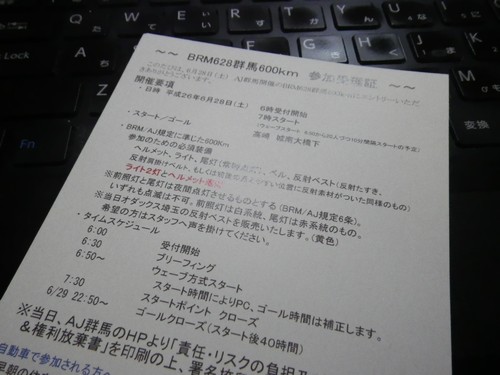 ~~ BRM628群馬600km 参加受理証 ~~
このたびは、6月28日(土) AJ群馬開催の
きありがとうございます。
開催要項
・日時 平成26年6月28日(土) 6時受付開始
7時スタート
(ウェーブスタート
・スタート/ゴール 高崎 城南大橋下
・BRM/AJ規定に準じた600Km
参加のための必須装備
ヘルメット、ライト、尾灯 ベル、反射ベスト(反射たすき、
反射肩掛けベスト、もしくは 位置に反射素材がついた同様のもの)
ライト2灯とヘルメット
※前照灯と尾灯は夜間点灯させるものとする(BRM/AJ規定6条)。
いずれも点滅は不可。前照灯は白系統、尾灯は赤系統のもの。
※当日オダックス埼玉の反射ベストを販売いたします。(黄色)
希望の方はスタッフへ声を掛けてください。
・タイムスケジュール
6:00 受付開始
6:30 ブリーフィング
6:50~ ウェーブ方式スタート
スタート時間によりPC、ゴール時間は補正します。
7:30 スタートポイント クローズ
6/29 22:50~ ゴールクローズ(スタート後40時間)
※当日、AJ群馬のHPより「責任・リスクの負担
&権利放棄書」を印刷の上、署名
自動車で参加される方